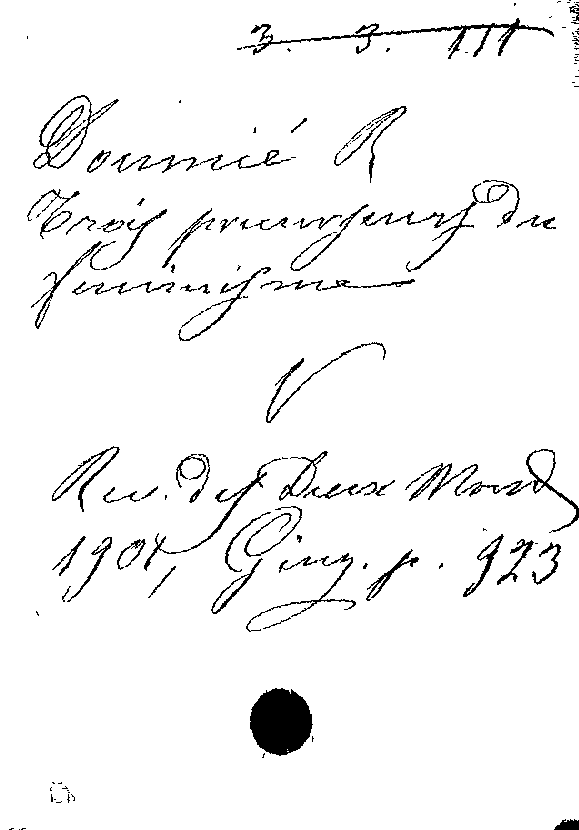 3. 3. 111
Doumié R
Trois précurseurs du
féminisme
V
Rev. des Deux Mond
1901, p. 923